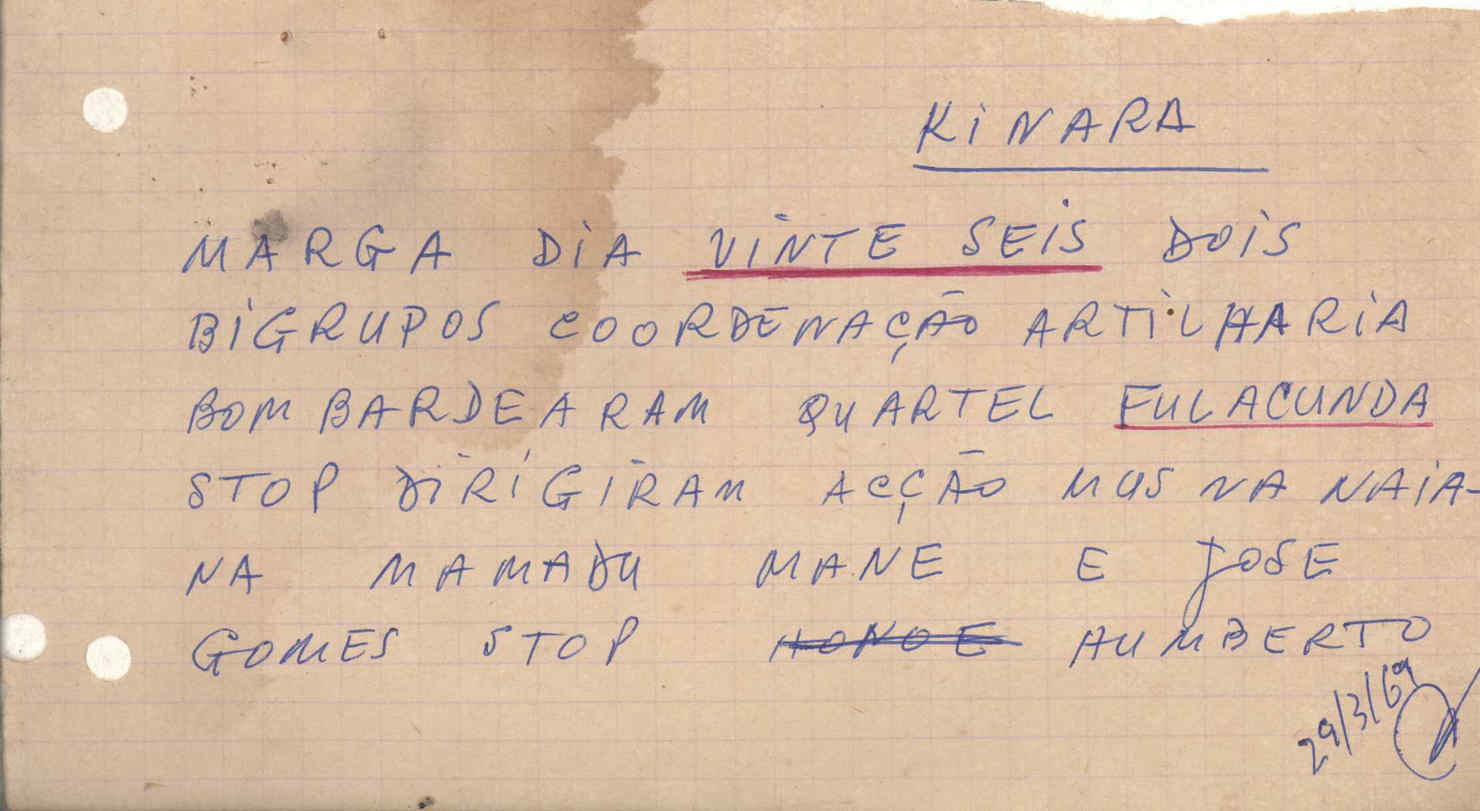 KINARA
MARGA DIA VINTE SEIS DOIS
BIGRUPOS COORDENAÇÃO ARTILHARIA
BOMBARDEARAM QUARTEL FULACUNDA
STOP DIRIGIRAM ACÇÃO MUS NA NAIA-
NA MAMADU MANE E JOSE
GOMES STOP HUMBERTO
29/3/69